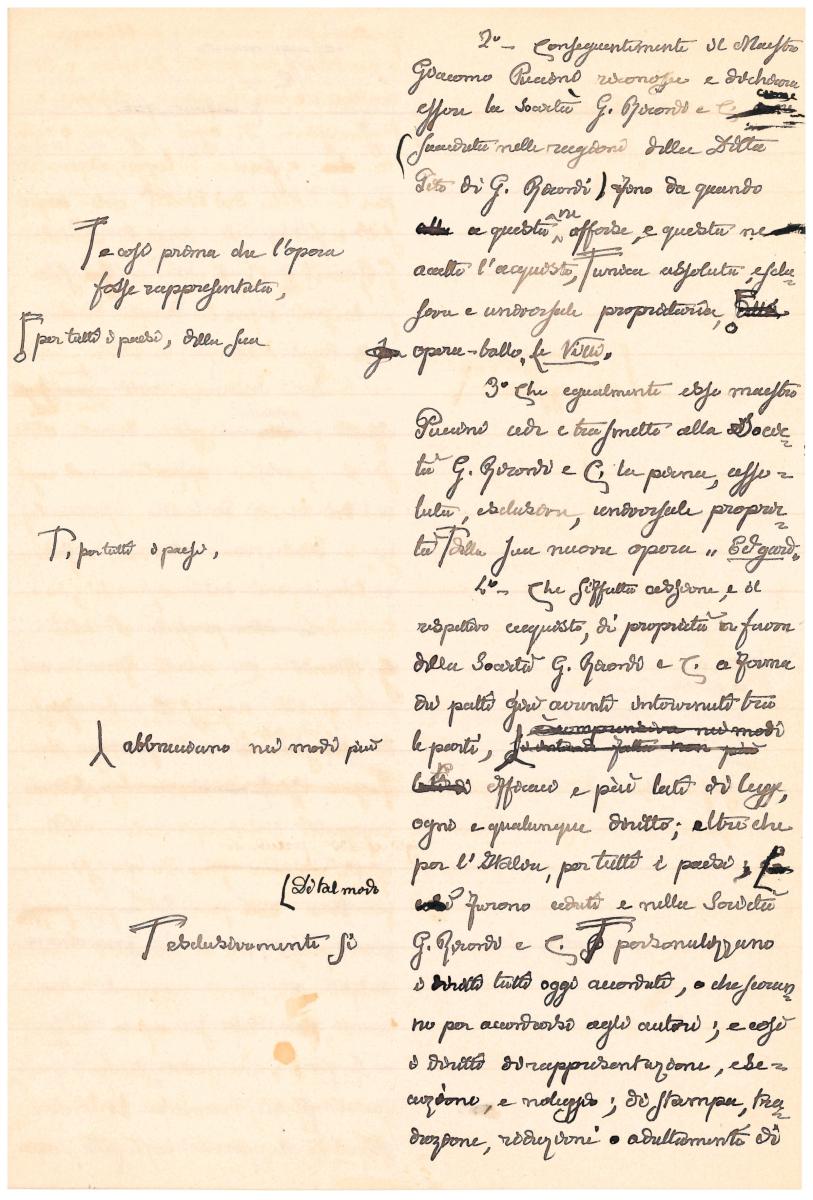 2º - Conseguentemente il Maestro
Giacomo Puccini riconosce e dichiara
essere la Società G. Ricordi e C. come
(succeduta nelle ragioni della Ditta
Tito di G. Ricordi) fino da quando
a questa ne offerse, e questa ne
accettò l'acquisto, unica assoluta, esclu-
siva e universale proprietaria,
opera-ballo, le Villi„
e così prima che l'opera
fosse rappresentata,
per tutti i paesi, della sua
3º Che egualmente esso maestro
Puccini cede e trasmette alla Socie=
tà G. Ricordi e C. la piena, asso=
luta, esclusiva, universale proprie=
tà della sua nuova opera „ Edgard„
, per tutti i paesi,
4º - Che siffatta cessione, e il
rispettivo acquisto, di proprietà a favore
della Società G. Ricordi e C. a forma
dei patti già avanti intervenuti tra
le parti,
abbracciano nei modi più
efficaci e più lati di legge,
ogni e qualunque diritto; oltre che
per l'Italia, per tutti i paesi;
Di tal modo
furono ceduti e nella Società
G. Ricordi e C. personalizzano
esclusivamente si
i diritti tutti oggi accordati, o che saran=
no per accordarsi agli autori; e così
i diritti di rappresentazione, ese=
cuzione, e noleggio; di stampa, tra=
duzione, riduzione o adattamento di